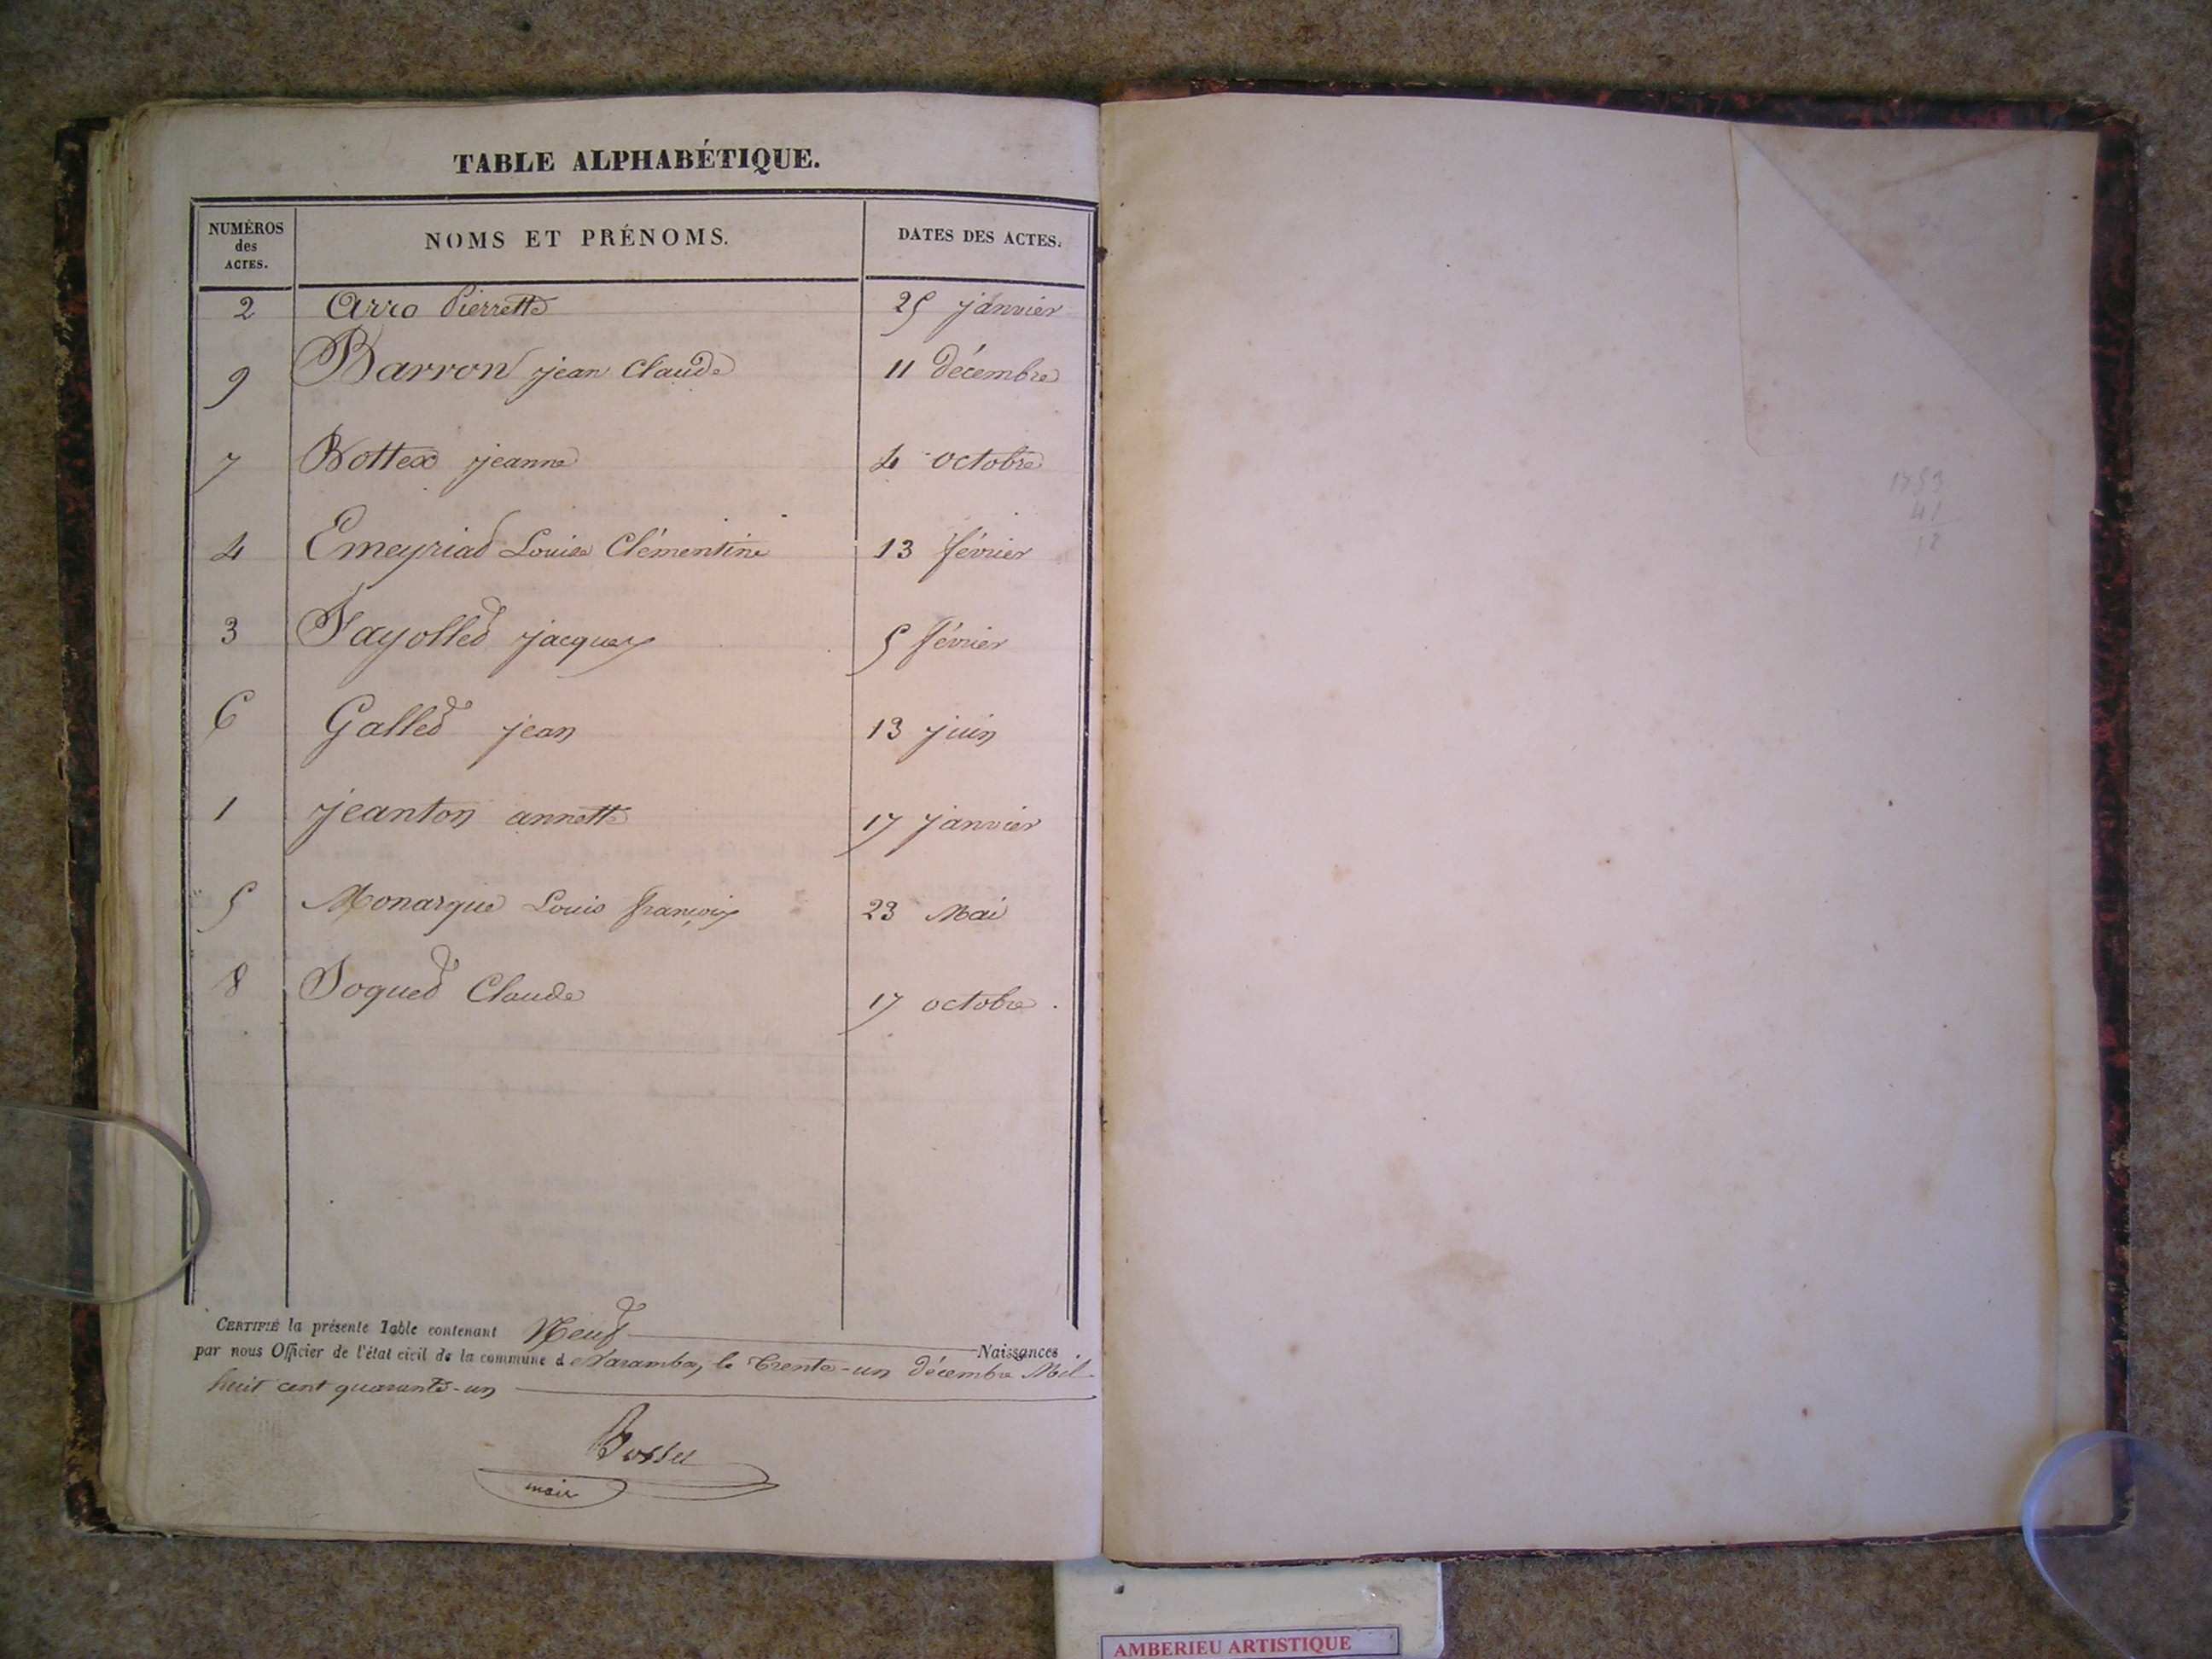 TABLE ALPHABÉTIQUE.
NUMÉROS des ACTES.
NOMS ET PRÉNOMS.
DATES DES ACTES.
2 Arro Pierrette 25 janvier
9 Barron jean Claude 11 décembre
7 Bottex jeanne 4 octobre
4 Emeyriat Louise Clémentine 13 février
3 Fayolle jacques 5 février
6 Gallet jean 13 juin
1 jeanton annette 17 janvier
5 Monarque Louis françois 23 Mai
8 Soquet Claude 17 octobre
CERTIFIÉ la présente Table contenant Neuf Naissances
par nous Officier de l'état civil de la commune de le trente-un décembre Mil
huit cent quarante-un
maire
41
AMBERIEU ARTISTIQUE